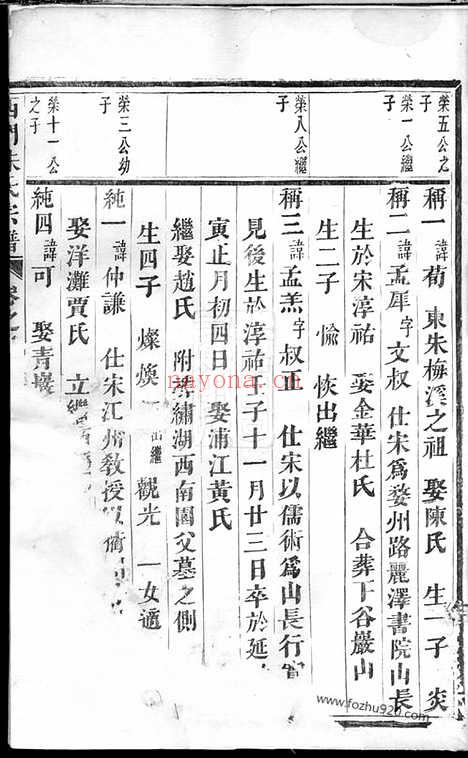 榮五公之子
稱一 諱荀 東朱梅溪之祖 娶陳氏 生一子 炎
榮一公繼子
稱二 諱孟犀 字文叔 仕宋爲婺州路麗澤書院山長
生於宋淳祐 娶金華杜氏 合葬下谷巖山
生二子 愉 恢出繼
榮八公繼子
稱三 諱孟羔 字叔正 仕宋以儒術爲山長行實
見後生於淳祐壬子十一月廿三日卒於延
寅正月初四日 娶浦江黃氏
繼娶趙氏 附葬繡湖西南園父墓之側
生四子 燦 煥 出繼 觀光 一女適
榮三公幼子
純一 諱仲謙 仕宋江州教授以衢
娶洋灘賈氏 立繼
榮十一公之子
純四 諱可 娶青巖
西門朱氏宗譜
nayona.cn
www.fozhu920.com